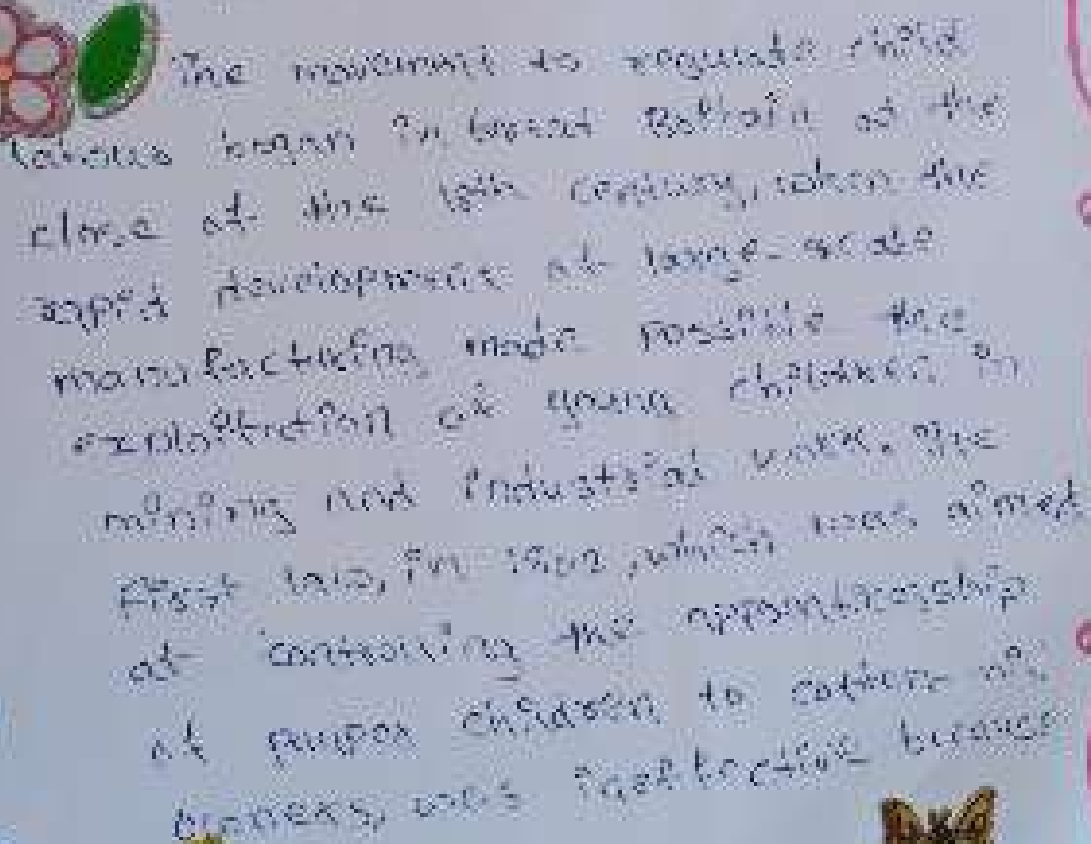 The movement to regulate child
labour began in Great Britain at the
close of the 18th century, when the
rapid development of large-scale
manufacturing made possible the
exploitation of young children in
mining and industrial work. The
first law, in 1802, which was aimed
at controlling the apprenticeship
of pauper children to cotton-mi
owners, was ineffective because